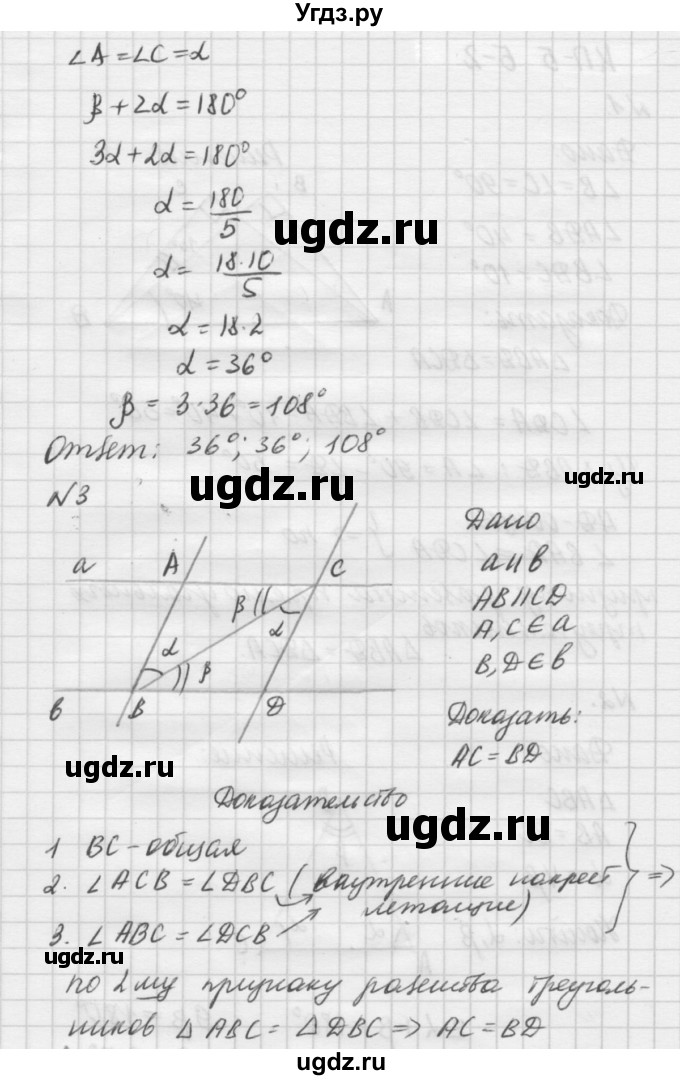 Угдз.ру
∠A = ∠C = α
β + 2α = 180°
3α + 2α = 180°
α = 180/5
ugdz.ru
α = 18·10/5
α = 18·2
α = 36°
β = 3·36 = 108°
Ответ: 36°; 36°; 108°
ugdz.ru
ugdz.ru
N3
Дано
a || в
AB || CD
A, C ∈ a
B, D ∈ в
Доказать:
AC = BD
a A C
β
α
α
β
в B D
ugdz.ru
ugdz.ru
Доказательство
ugdz.ru
1 BC - общая
2. ∠ACB = ∠DBC (внутренние накрест
лежащие)
3. ∠ABC = ∠DCB
⇒
ugdz.ru
по 2му признаку равенства треуголь-
ников △ABC = △DBC ⇒ AC = BD
ugdz.ru
ugdz.ru